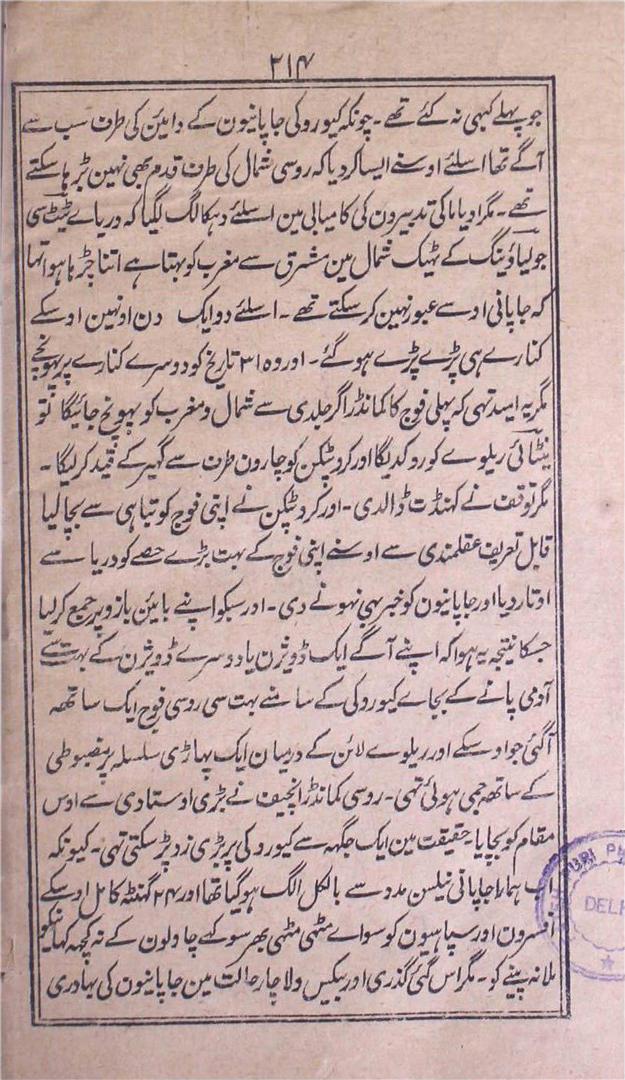 ۲۱۴
جو پہلے کبھی نہ کئے تھے ۔ چونکہ کیورو کی جاپانیون کے داہین کی طرف سب سے
آگے تھا اسلئے اوسنے ایسا کر دیا کہ روسی شمال کی طرف قدم بھی نہین بڑہا سکتے
تھے ۔ مگر ادیاما کی تدبیرون کی کامیابی مین اسلئے دہکا لگ گیا کہ دریاے ٹیٹ سی
جو لیاؤینگ کے ٹہیک شمال مین مشرق سے مغرب کو بہتا ہے اتنا چڑہا ہوا تہا
کہ جاپانی اوسے عبور نہین کر سکتے تھے ۔ اسلئے دو ایک دن اونہین اوسکے
کنارے ہی پڑے پڑے ہو گئے ۔ اور وہ ۳۱ تاریخ کو دوسرے کنارے پر پہونچے
مگر یہ امید تہی کہ پہلی فوج کا کمانڈر اگر جلدی سے شمال و مغرب کو پہونچ جائیگا تو
ینٹائی ریلوے کو روکدیگا اور کروٹپکن کو چارون طرف سے گہیر کے قید کر لیگا ۔
مگر توقف نے کہنڈت ڈالدی ۔ اور کروٹپکن نے اپنی فوج کو تباہی سے بچا لیا
قابل تعریف عقلمندی سے اوسنے اپنی فوج کے بہت بڑے حصے کو دریا سے
اوتار دیا اور جاپانیون کو خبر بہی نہونے دی ۔ اور سبکو اپنے بائین بازو پر جمع کر لیا
جسکا نتیجہ یہ ہوا کہ اپنے آگے ایک ڈویژن یا دوسرے ڈویژن کے بہت سے
آدمی پانے کے بجاے کیورو کی کے سامنے بہت سی روسی فوج ایک ساتھہ
آگئی جو اوسکے اور ریلوے لائن کے درمیان ایک پہاڑی سلسلہ پر مضبوطی
کے ساتھہ جمی ہوئی تہی ۔ روسی کمانڈر انچیف نے بڑی اوستادی سے اوس
مقام کو بچایا ۔ حقیقت مین ایک جگہہ سے کیورو کی پر بڑی زد پڑ سکتی تہی ۔ کیونکہ
اب ہمارا جاپانی نیلسن مدد سے بالکل الگ ہو گیا تھا اور ۲۴ گہنٹہ کامل اوسکے
افسرون اور سپاہیون کو سواے مٹھی مٹھی بھر سوکہے چاولون کے نہ کچھہ کہانیکو
ملا نہ پینے کو ۔ مگر اس گئی گذری اور بیکس ولاچار حالت مین جاپانیون کی بہادری
DELH